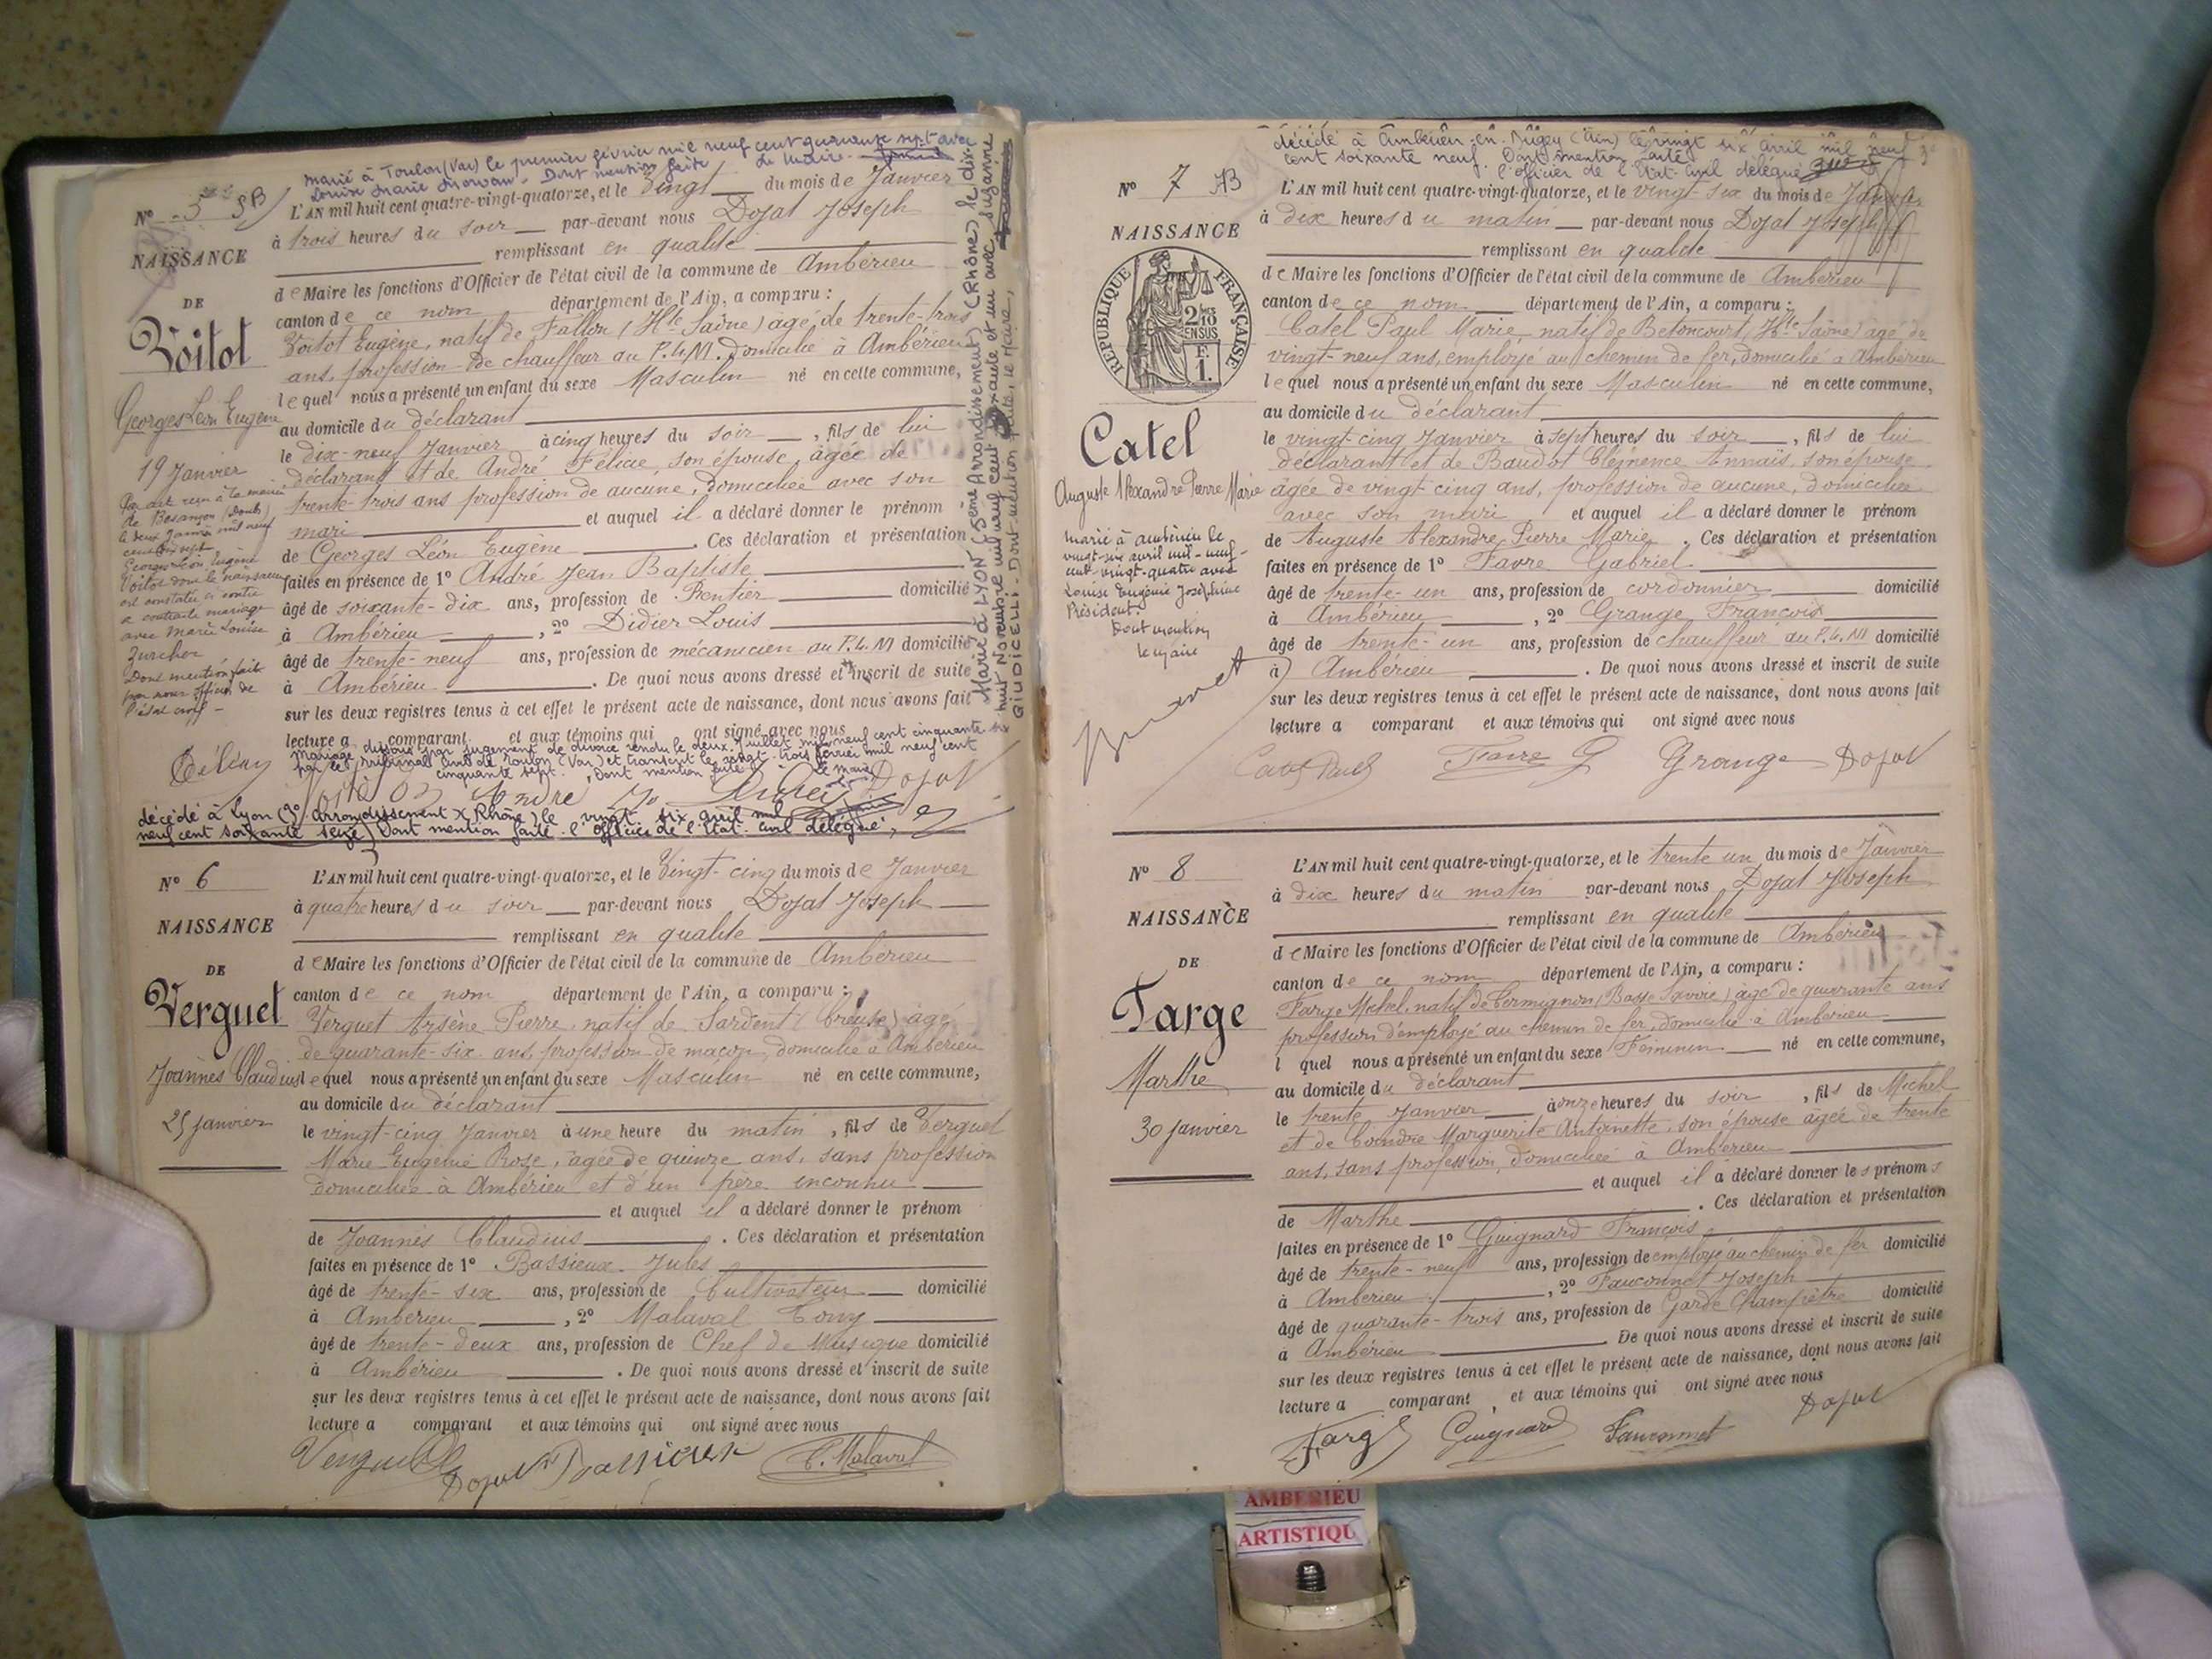 marié à Toulon (Var) le premier février mil neuf cent quarante sept avec
Louise Marie Morvan. Dont mention faite Le Maire
N° 5
NAISSANCE
DE
Voitot
Georges Léon Eugène
19 Janvier
Par acte reçu à la mairie
de Besançon (Doubs)
le deux janvier mil neuf
cent dix sept
Georges Léon Eugène
Voitot dont la naissance
est constatée ci contre
a contracté mariage
avec Marie Louise
Zurcher
Dont mention faite
par nous officier de
l'état civil -
L'AN mil huit cent quatre-vingt-quatorze, et le Vingt du mois de Janvier
à trois heures du soir par-devant nous Dojat Joseph
remplissant en qualité
de Maire les fonctions d'Officier de l'état civil de la commune de Ambérieu
canton de ce nom département de l'Ain, a comparu :
Voitot Eugène, natif de Fallon (Hte Saône) âgé de trente-trois
ans, profession de chauffeur au P.L.M. domicilié à Ambérieu
lequel nous a présenté un enfant du sexe Masculin né en cette commune,
au domicile du déclarant
le dix-neuf Janvier à cinq heures du soir, fils de lui
déclarant et de André Félicie, son épouse, âgée de
trente-trois ans profession de aucune, domiciliée avec son
mari et auquel il a déclaré donner le prénom
de Georges Léon Eugène. Ces déclaration et présentation
faites en présence de 1° André Jean Baptiste
âgé de soixante-dix ans, profession de Rentier domicilié
à Ambérieu, 2° Didier Louis
âgé de trente-neuf ans, profession de mécanicien au P.L.M domicilié
à Ambérieu. De quoi nous avons dressé et inscrit de suite
sur les deux registres tenus à cet effet le présent acte de naissance, dont nous avons fait
lecture a comparant et aux témoins qui ont signé avec nous
Mariage dissous par jugement de divorce rendu le deux Juillet mil neuf cent cinquante six
par le Tribunal Civil de Toulon (Var) et transcrit le vingt-trois février mil neuf cent
cinquante sept. Dont mention faite. Le maire
André Dojat
décédé à Lyon (3e arrondissement) (Rhône) le vingt-six avril mil
neuf cent soixante seize) Dont mention faite. l'officier de l'Etat-Civil délégué,
Marié à LYON (3ème Arrondissement) (Rhône) le dix-
huit Novembre mil neuf cent soixante et un avec Suzanne
GIUDICELLI - Dont mention faite, le Maire,
N° 6
NAISSANCE
DE
Verguet
Joannès Claudius
25 janvier
L'AN mil huit cent quatre-vingt-quatorze, et le Vingt-cinq du mois de Janvier
à quatre heures du soir par-devant nous Dojat Joseph
remplissant en qualité
de Maire les fonctions d'Officier de l'état civil de la commune de Ambérieu
canton de ce nom département de l'Ain, a comparu :
Verguet Arsène Pierre, natif de Sardent (Creuse) âgé
de quarante-six ans, profession de maçon, domicilié à Ambérieu
lequel nous a présenté un enfant du sexe Masculin né en cette commune,
au domicile du déclarant
le vingt-cinq Janvier à une heure du matin, fils de Verguet
Marie Eugénie Rose, âgée de quinze ans, sans profession
domiciliée à Ambérieu et d'un père inconnu
et auquel il a déclaré donner le prénom
de Joannès Claudius. Ces déclaration et présentation
faites en présence de 1° Bassieux Jules
âgé de trente-six ans, profession de Cultivateur domicilié
à Ambérieu, 2° Malaval Tony
âgé de trente-deux ans, profession de Chef de Musique domicilié
à Ambérieu. De quoi nous avons dressé et inscrit de suite
sur les deux registres tenus à cet effet le présent acte de naissance, dont nous avons fait
lecture a comparant et aux témoins qui ont signé avec nous
Verguet Dojat Bassieux T. Malaval
décédé à Ambérieu-en-Bugey (Ain) le vingt six avril mil neuf
cent soixante neuf. Dont mention faite
l'officier de l'Etat-Civil délégué
N° 7
NAISSANCE
RÉPUBLIQUE FRANÇAISE
2/10 EN SUS
F. 1.
Catel
Auguste Alexandre Pierre Marie
marié à Ambérieu le
vingt-six avril mil-neuf-
cent-vingt-quatre avec
Louise Eugénie Joséphine
Président.
Dont mention
le maire
L'AN mil huit cent quatre-vingt-quatorze, et le vingt-six du mois de Janvier
à dix heures du matin par-devant nous Dojat Joseph
remplissant en qualité
de Maire les fonctions d'Officier de l'état civil de la commune de Ambérieu
canton de ce nom département de l'Ain, a comparu :
Catel Paul Marie, natif de Betoncourt (Hte Saône) âgé de
vingt-neuf ans, employé au chemin de fer, domicilié à Ambérieu
lequel nous a présenté un enfant du sexe Masculin né en cette commune,
au domicile du déclarant
le vingt-cinq Janvier à sept heures du soir, fils de lui
déclarant et de Baudot Clémence Annaïs, son épouse
âgée de vingt-cinq ans, profession de aucune, domiciliée
avec son mari et auquel il a déclaré donner le prénom
de Auguste Alexandre Pierre Marie. Ces déclaration et présentation
faites en présence de 1° Favre Gabriel
âgé de trente-un ans, profession de cordonnier domicilié
à Ambérieu, 2° Grange François
âgé de trente-un ans, profession de chauffeur au P.L.M domicilié
à Ambérieu. De quoi nous avons dressé et inscrit de suite
sur les deux registres tenus à cet effet le présent acte de naissance, dont nous avons fait
lecture a comparant et aux témoins qui ont signé avec nous
Catel Paul Favre G Grange Dojat
N° 8
NAISSANCE
DE
Farge
Marthe
30 janvier
L'AN mil huit cent quatre-vingt-quatorze, et le trente un du mois de Janvier
à dix heures du matin par-devant nous Dojat Joseph
remplissant en qualité
de Maire les fonctions d'Officier de l'état civil de la commune de Ambérieu
canton de ce nom département de l'Ain, a comparu :
Farge Michel, natif de (Basse Savoie) âgé de quarante ans
profession d'employé au chemin de fer, domicilié à Ambérieu
l quel nous a présenté un enfant du sexe Féminin né en cette commune,
au domicile du déclarant
le trente Janvier à onze heures du soir, fils de Michel
et de Coindre Marguerite Antoinette, son épouse âgée de trente
ans, sans profession, domiciliée à Ambérieu
et auquel il a déclaré donner les prénoms
de Marthe. Ces déclaration et présentation
faites en présence de 1° Guignard François
âgé de trente-neuf ans, profession de employé au chemin de fer domicilié
à Ambérieu, 2° Fauconnet Joseph
âgé de quarante-trois ans, profession de Garde Champêtre domicilié
à Ambérieu. De quoi nous avons dressé et inscrit de suite
sur les deux registres tenus à cet effet le présent acte de naissance, dont nous avons fait
lecture a comparant, et aux témoins qui ont signé avec nous
Farge Guignard Fauconnet Dojat
AMBERIEU
ARTISTIQU